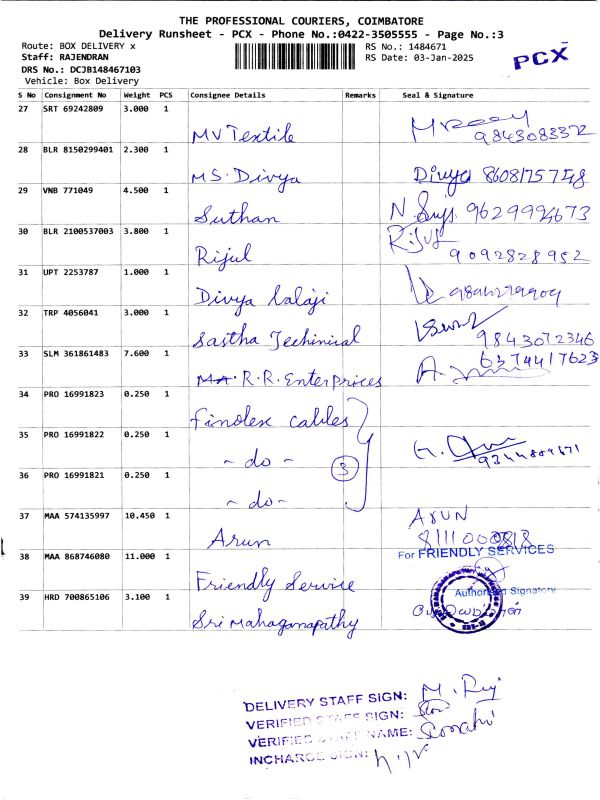 THE PROFESSIONAL COURIERS, COIMBATORE
Delivery Runsheet - PCX - Phone No.:0422-3505555 - Page No.:3
Route: BOX DELIVERY x
RS No.: 1484671
Staff: RAJENDRAN
RS Date: 03-Jan-2025
DRS No.: DCJB148467103
Vehicle: Box Delivery
PCX
S No Consignment No Weight PCS Consignee Details Remarks Seal & Signature
27 SRT 69242809 3.000 1 MV Textile 9843083372
28 BLR 8150299401 2.300 1 MS. Divya Divya 8608175748
29 VNB 771049 4.500 1 Suthan 9629994673
30 BLR 2100537003 3.800 1 Rijul Rijul 9092828952
31 UPT 2253787 1.000 1 Divya balaji
32 TRP 4056041 3.000 1 Sastha Techinical 9843072346
33 SLM 361861483 7.600 1 R.R. Enterprices 6374417623
34 PRO 16991823 0.250 1 finolex cables
35 PRO 16991822 0.250 1 - do - 3
36 PRO 16991821 0.250 1 - do -
37 MAA 574135997 10.450 1 Arun ARUN
38 MAA 868746080 11.000 1 Friendly Service For FRIENDLY SERVICES
Authorised Signatory
39 HRD 700865106 3.100 1 Sri Mahaganapathy
DELIVERY STAFF SIGN:
VERIFIED STAFF SIGN:
VERIFIED STAFF NAME:
INCHARGE SIGN: